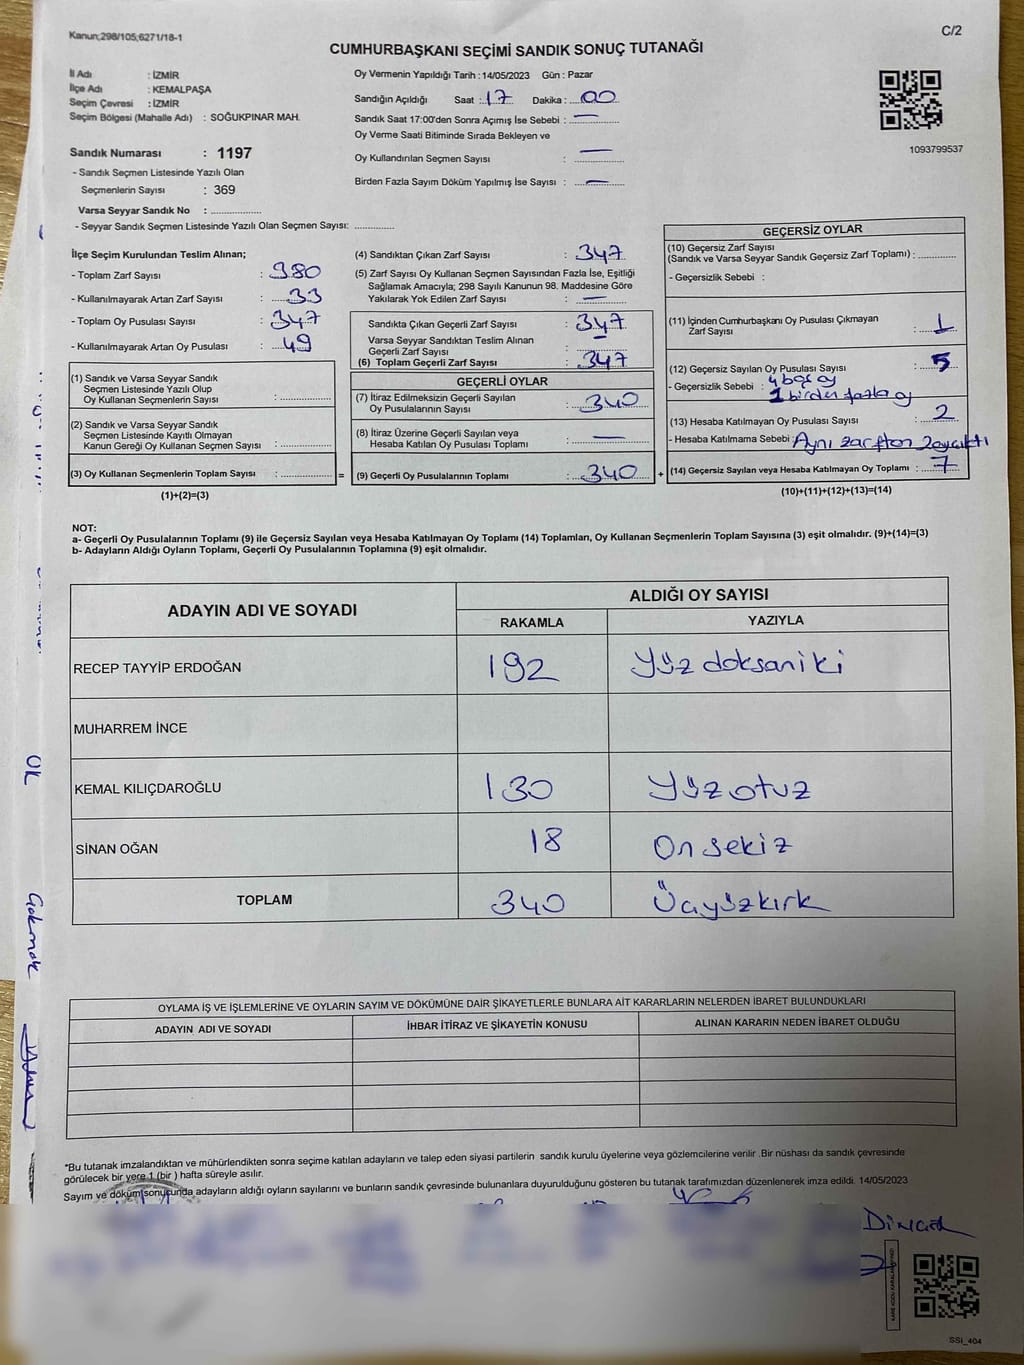 Kanun;298/105;6271/18-1
C/2
CUMHURBAŞKANI SEÇİMİ SANDIK SONUÇ TUTANAĞI
İl Adı : İZMİR
İlçe Adı : KEMALPAŞA
Seçim Çevresi : İZMİR
Seçim Bölgesi (Mahalle Adı) : SOĞUKPINAR MAH.
Sandık Numarası : 1197
- Sandık Seçmen Listesinde Yazılı Olan
Seçmenlerin Sayısı : 369
Varsa Seyyar Sandık No : ................
- Seyyar Sandık Seçmen Listesinde Yazılı Olan Seçmen Sayısı: .............
Oy Vermenin Yapıldığı Tarih : 14/05/2023 Gün : Pazar
Sandığın Açıldığı Saat : 17 Dakika : 00
Sandık Saat 17:00'den Sonra Açımış İse Sebebi : —
Oy Verme Saati Bitiminde Sırada Bekleyen ve
Oy Kullandırılan Seçmen Sayısı : —
Birden Fazla Sayım Döküm Yapılmış İse Sayısı : —
1093799537
İlçe Seçim Kurulundan Teslim Alınan;
- Toplam Zarf Sayısı : 380
- Kullanılmayarak Artan Zarf Sayısı : 33
- Toplam Oy Pusulası Sayısı : 347
- Kullanılmayarak Artan Oy Pusulası : 49
(1) Sandık ve Varsa Seyyar Sandık
Seçmen Listesinde Yazılı Olup
Oy Kullanan Seçmenlerin Sayısı : ................
(2) Sandık ve Varsa Seyyar Sandık
Seçmen Listesinde Kayıtlı Olmayan
Kanun Gereği Oy Kullanan Seçmen Sayısı : ................
(3) Oy Kullanan Seçmenlerin Toplam Sayısı : ................ =
(1)+(2)=(3)
(4) Sandıktan Çıkan Zarf Sayısı : 347
(5) Zarf Sayısı Oy Kullanan Seçmen Sayısından Fazla İse, Eşitliği
Sağlamak Amacıyla; 298 Sayılı Kanunun 98. Maddesine Göre
Yakılarak Yok Edilen Zarf Sayısı : —
Sandıkta Çıkan Geçerli Zarf Sayısı : 347
Varsa Seyyar Sandıktan Teslim Alınan
Geçerli Zarf Sayısı : —
(6) Toplam Geçerli Zarf Sayısı : 347
GEÇERLİ OYLAR
(7) İtiraz Edilmeksizin Geçerli Sayılan
Oy Pusulalarının Sayısı : 340
(8) İtiraz Üzerine Geçerli Sayılan veya
Hesaba Katılan Oy Pusulası Toplamı : —
(9) Geçerli Oy Pusulalarının Toplamı : 340 +
GEÇERSİZ OYLAR
(10) Geçersiz Zarf Sayısı
(Sandık ve Varsa Seyyar Sandık Geçersiz Zarf Toplamı) : .............
- Geçersizlik Sebebi :
(11) İçinden Cumhurbaşkanı Oy Pusulası Çıkmayan
Zarf Sayısı : 1
(12) Geçersiz Sayılan Oy Pusulası Sayısı : 5
- Geçersizlik Sebebi : 4 boş oy
1 birden fazla oy
(13) Hesaba Katılmayan Oy Pusulası Sayısı : 2
- Hesaba Katılmama Sebebi : Aynı zarftan 2 oy çıktı
(14) Geçersiz Sayılan veya Hesaba Katılmayan Oy Toplamı : 7
(10)+(11)+(12)+(13)=(14)
NOT:
a- Geçerli Oy Pusulalarının Toplamı (9) ile Geçersiz Sayılan veya Hesaba Katılmayan Oy Toplamı (14) Toplamları, Oy Kullanan Seçmenlerin Toplam Sayısına (3) eşit olmalıdır. (9)+(14)=(3)
b- Adayların Aldığı Oyların Toplamı, Geçerli Oy Pusulalarının Toplamına (9) eşit olmalıdır.
ADAYIN ADI VE SOYADI
ALDIĞI OY SAYISI
RAKAMLA YAZIYLA
RECEP TAYYİP ERDOĞAN 192 Yüz doksan iki
MUHARREM İNCE
KEMAL KILIÇDAROĞLU 130 Yüz otuz
SİNAN OĞAN 18 On sekiz
TOPLAM 340 Üçyüzkırk
OYLAMA İŞ VE İŞLEMLERİNE VE OYLARIN SAYIM VE DÖKÜMÜNE DAİR ŞİKAYETLERLE BUNLARA AİT KARARLARIN NELERDEN İBARET BULUNDUKLARI
ADAYIN ADI VE SOYADI İHBAR İTİRAZ VE ŞİKAYETİN KONUSU ALINAN KARARIN NEDEN İBARET OLDUĞU
*Bu tutanak imzalandıktan ve mühürlendikten sonra seçime katılan adayların ve talep eden siyasi partilerin sandık kurulu üyelerine veya gözlemcilerine verilir .Bir nüshası da sandık çevresinde
görülecek bir yere 1 (bir ) hafta süreyle asılır.
Sayım ve döküm sonucunda adayların aldığı oyların sayılarını ve bunların sandık çevresinde bulunanlara duyurulduğunu gösteren bu tutanak tarafımızdan düzenlenerek imza edildi. 14/05/2023
SSI_404